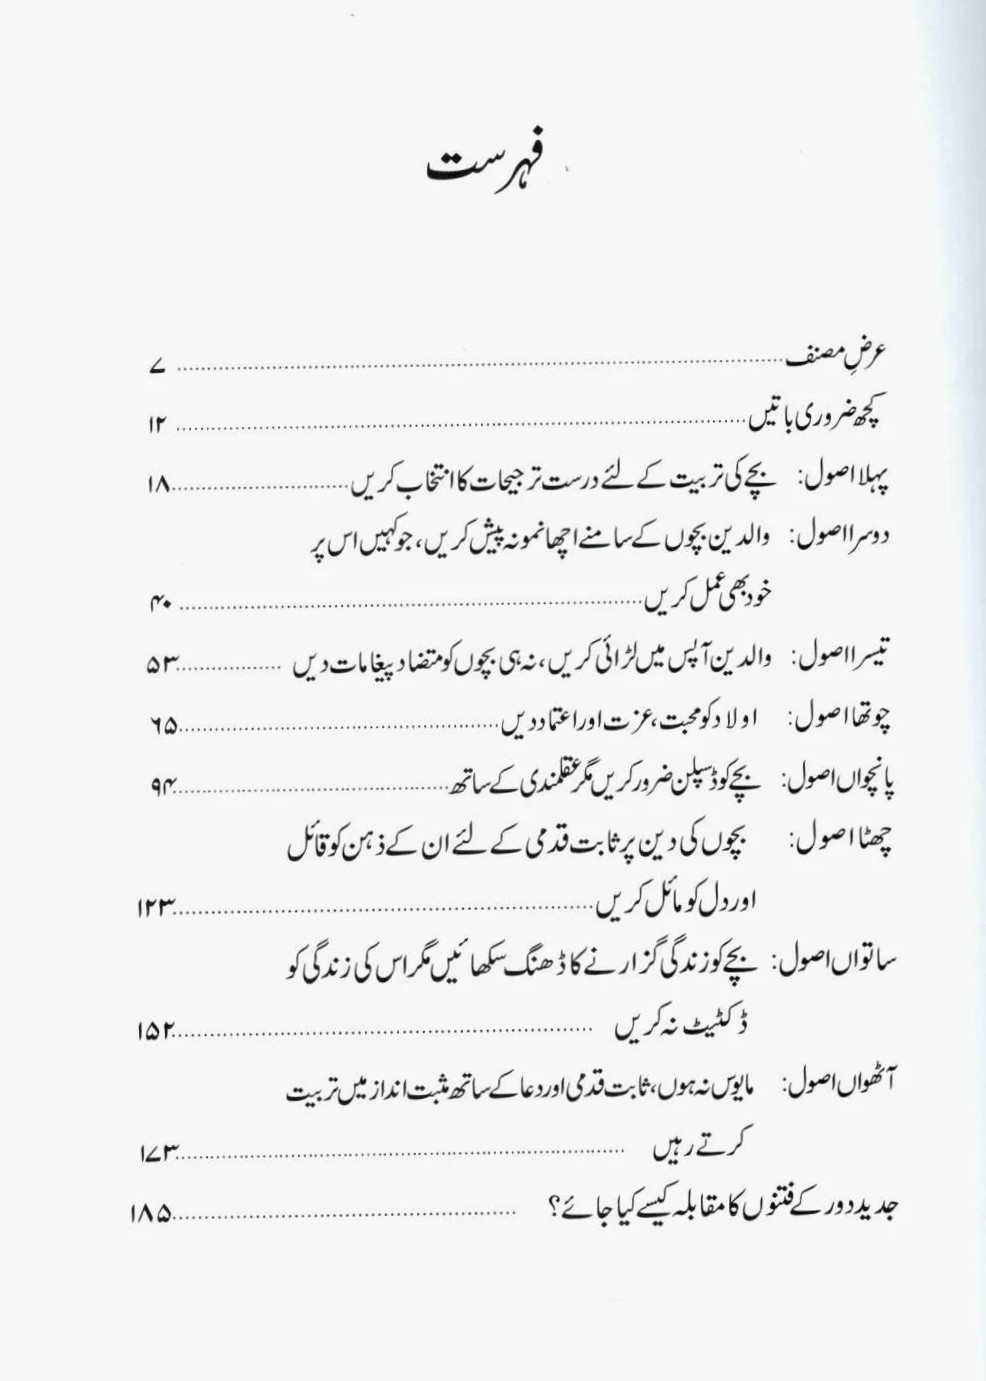 فہرست
عرضِ مصنف ........ ۷
کچھ ضروری باتیں ........ ۱۲
پہلا اصول: بچے کی تربیت کے لئے درست ترجیحات کا انتخاب کریں ........ ۱۸
دوسرا اصول: والدین بچوں کے سامنے اچھا نمونہ پیش کریں، جو کہیں اس پر
خود بھی عمل کریں ........ ۴۰
تیسرا اصول: والدین آپس میں لڑائی کریں، نہ ہی بچوں کو متضاد پیغامات دیں ........ ۵۳
چوتھا اصول: اولاد کو محبت، عزت اور اعتماد دیں ........ ۶۵
پانچواں اصول: بچے کو ڈسپلن ضرور کریں مگر عقلمندی کے ساتھ ........ ۹۴
چھٹا اصول: بچوں کی دین پر ثابت قدمی کے لئے ان کے ذہن کو قائل
اور دل کو مائل کریں ........ ۱۲۳
ساتواں اصول: بچے کو زندگی گزارنے کا ڈھنگ سکھائیں مگر اس کی زندگی کو
ڈکٹیٹ نہ کریں ........ ۱۵۲
آٹھواں اصول: مایوس نہ ہوں، ثابت قدمی اور دعا کے ساتھ مثبت انداز میں تربیت
کرتے رہیں ........ ۱۷۳
جدید دور کے فتنوں کا مقابلہ کیسے کیا جائے؟ ........ ۱۸۵